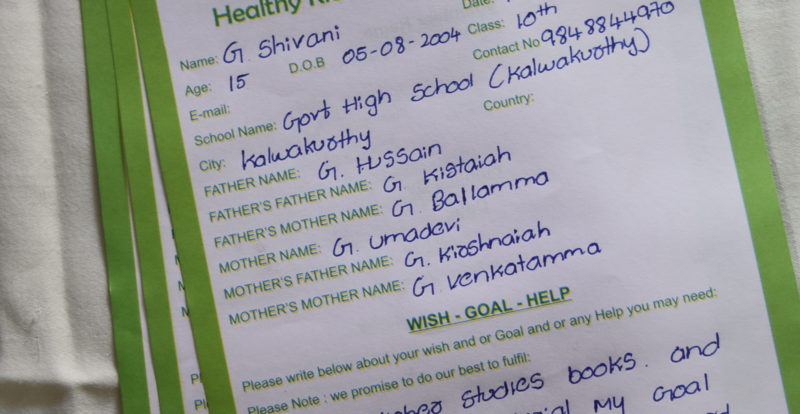 Healthy
Date:
Name: G. Shivani
Class: 10th
Age: 15 D.O.B 05-08-2004
Contact No 9848844970
E-mail:
School Name: Govt High School (Kalwakurthy)
City: Kalwakurthy Country:
FATHER NAME: G. Hussain
FATHER'S FATHER NAME: G. Kistaiah
FATHER'S MOTHER NAME: G. Ballamma
MOTHER NAME: G. Umadevi
MOTHER'S FATHER NAME: G. Kirshnaiah
MOTHER'S MOTHER NAME: G Venkatamma
WISH - GOAL - HELP
Please write below about your wish and or Goal and or any Help you may need:
Please Note : we promise to do our best to fulfil:
studies books. and
My Goal